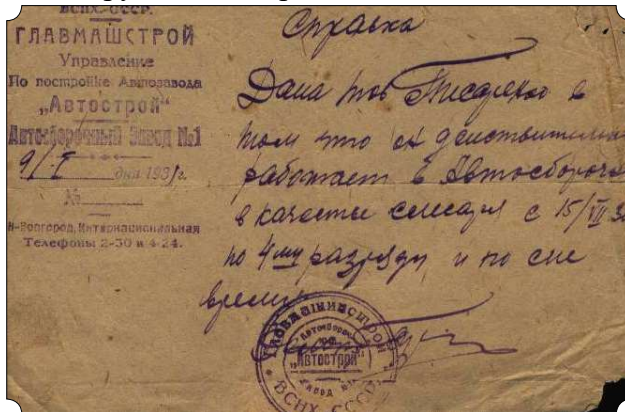 ВСНХ-СССР.
ГЛАВМАШСТРОЙ
Управление
По постройке Автозавода
„Автострой“
Автосборочный Завод №1
9/I дня 1931г.
№
Н-Новгород, Интернациональная
Телефоны 2-30 и 4-24.
Справка
Дана тов в
том что он действительно
работает в Автосбороч
в качестве слесаря с 15/VII
по 4му разряду и по сие
время
ГЛАВМАШИНОСТРОЙ
Автосбороч
„Автострой“
завод
ВСНХ СССР